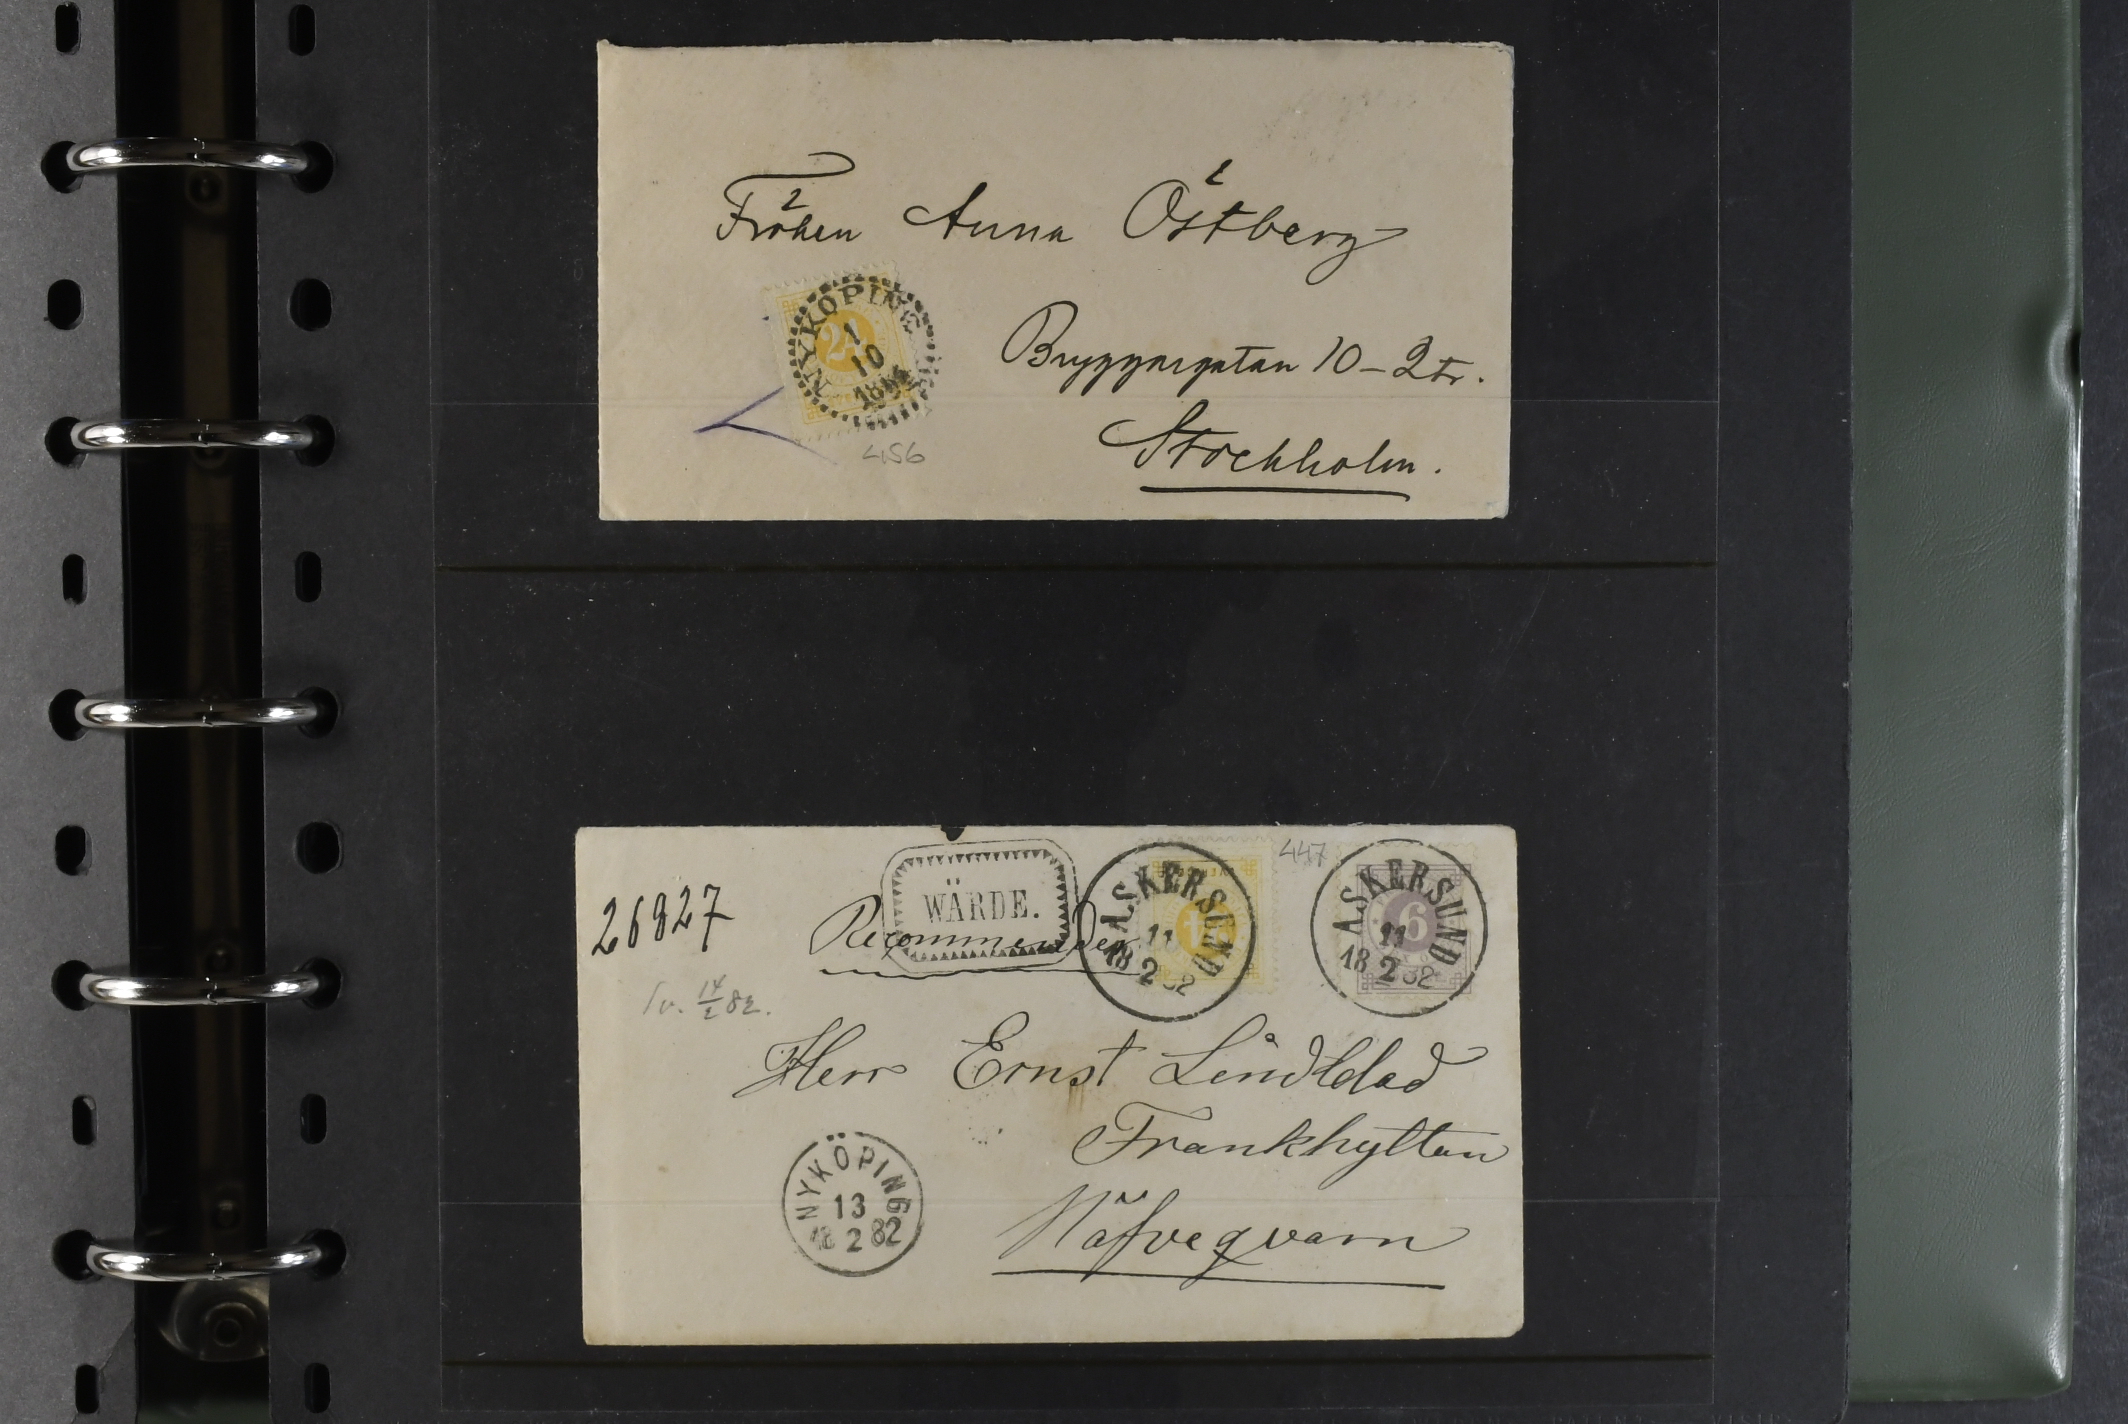 Fröken Anna Östberg
NYKÖPING
1
10
24
Bryggargatan 10-2tr.
Stockholm.
4156
26827
WÄRDE.
Recommenderas
ASKERSUND
11
18 2 82
447
ASKERSUND
11
18 2 82
6
14/2 82.
Herr Ernst Lindblad
Frankhyttan
NYKÖPING
13
18 2 82
Näfveqvarn